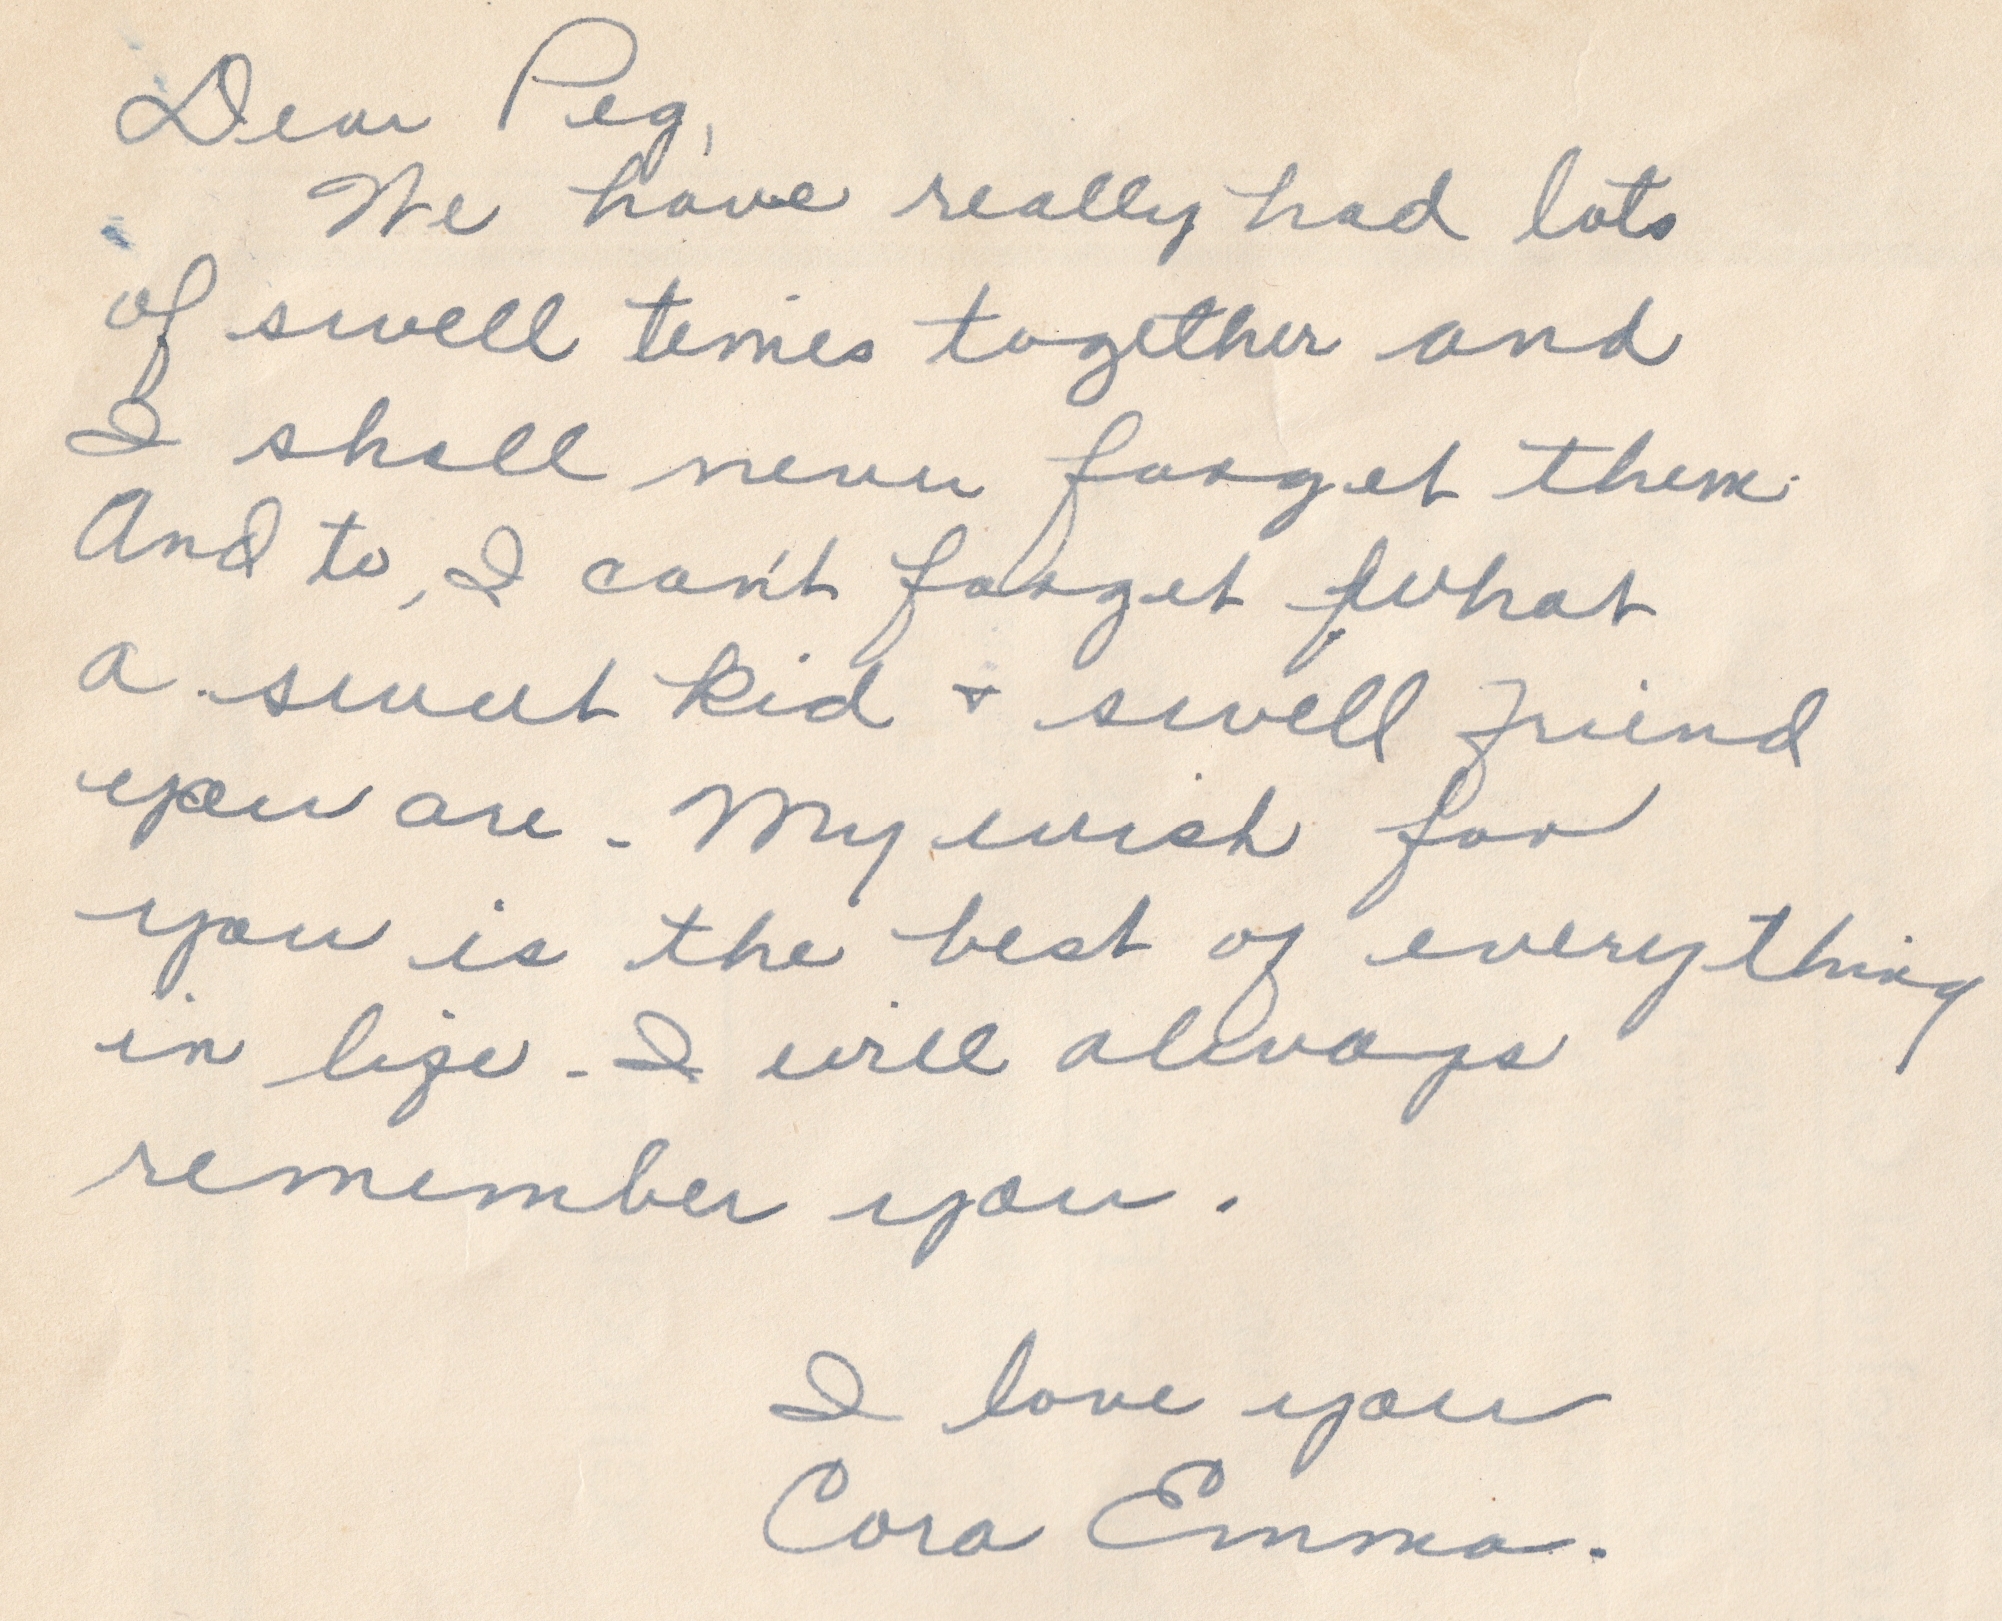 Dear Peg,
We have really had lots
of swell times together and
I shall never forget them.
And to, I can't forget what
a sweet kid + swell friend
you are - My wish for
you is the best of everything
in life - I will always
remember you.
I love you
Cora Emma.